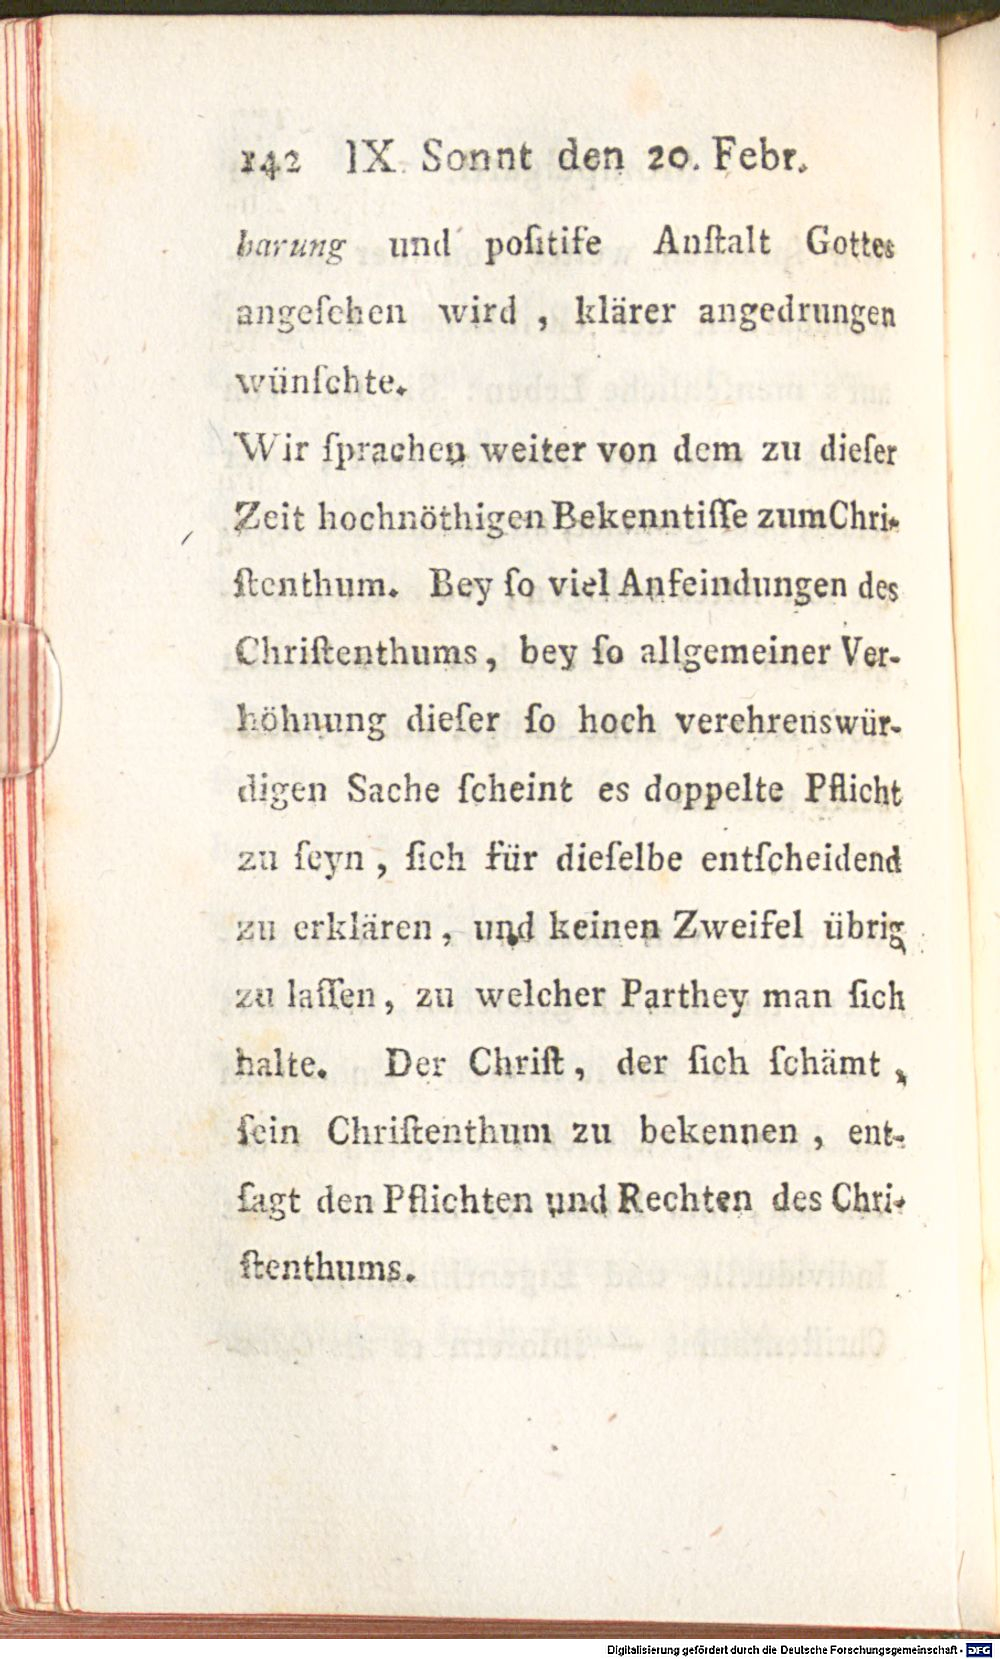 142 IX. Sonnt den 20. Febr.
barung und poſitife Anſtalt Gottes
angeſehen wird , klärer angedrungen
wünſchte.
Wir ſprachen weiter von dem zu dieſer
Zeit hochnöthigen Bekenntiſſe zumChri-
ſtenthum. Bey ſo viel Anfeindungen des
Chriſtenthums, bey ſo allgemeiner Ver-
höhnung dieſer ſo hoch verehrenswür-
digen Sache ſcheint es doppelte Pflicht
zu ſeyn , ſich für dieſelbe entſcheidend
zu erklären , und keinen Zweifel übrig
zu laſſen , zu welcher Parthey man ſich
halte. Der Chriſt , der ſich ſchämt ,
ſein Chriſtenthum zu bekennen , ent-
ſagt den Pflichten und Rechten des Chri-
ſtenthums.
Digitalisierung gefördert durch die Deutsche Forschungsgemeinschaft - DFG